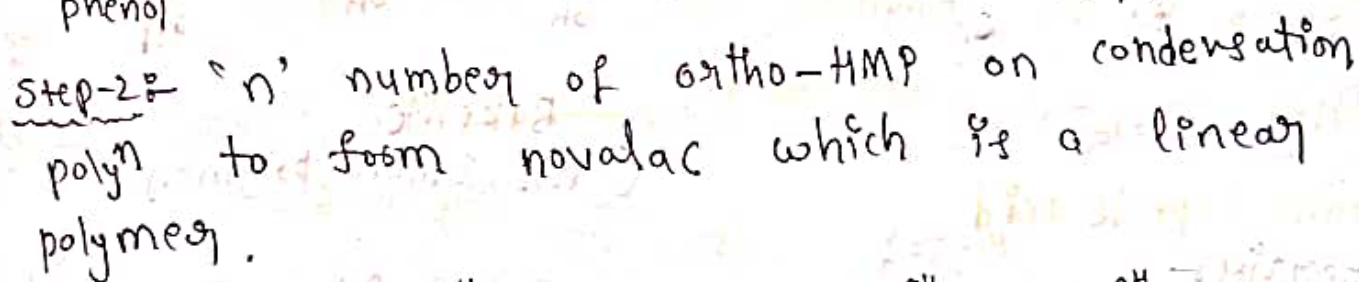 phenol.
Step-2:- 'n' number of ortho-HMP on condensation
polyⁿ to form novalac which is a linear
polymer.